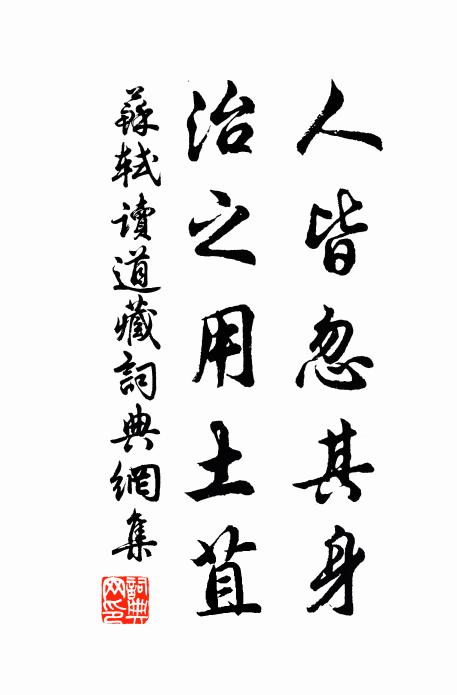 人皆忽其身
治之用土苴
蘇軾讀道藏詞典網集
詞典
网印